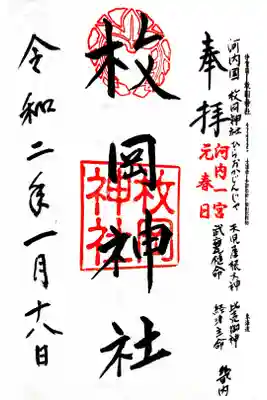 河内国 枚岡神社 ひらおかじんじゃ
天児屋根大神 比売御神
武甕槌命 経津主命
奉拝
河内一宮
元春日
枚岡神社
枚岡
神社
令和二年一月十八日